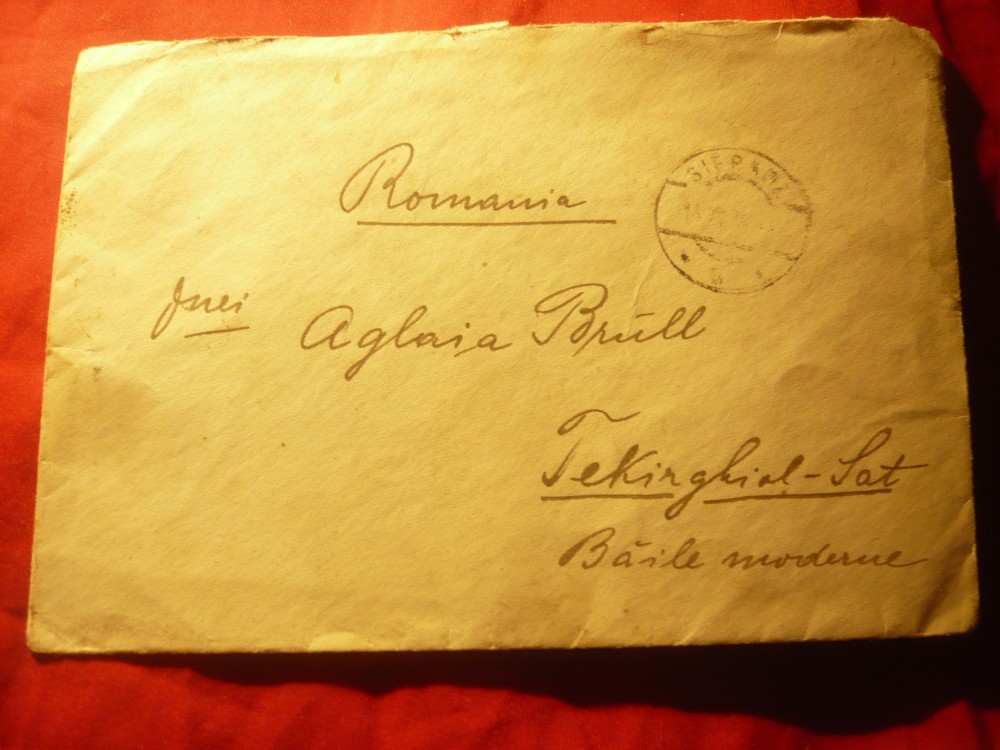 Romania
SIERADZ
Dnei
Aglaia Brüll
Tekirghiol-Sat
Băile moderne